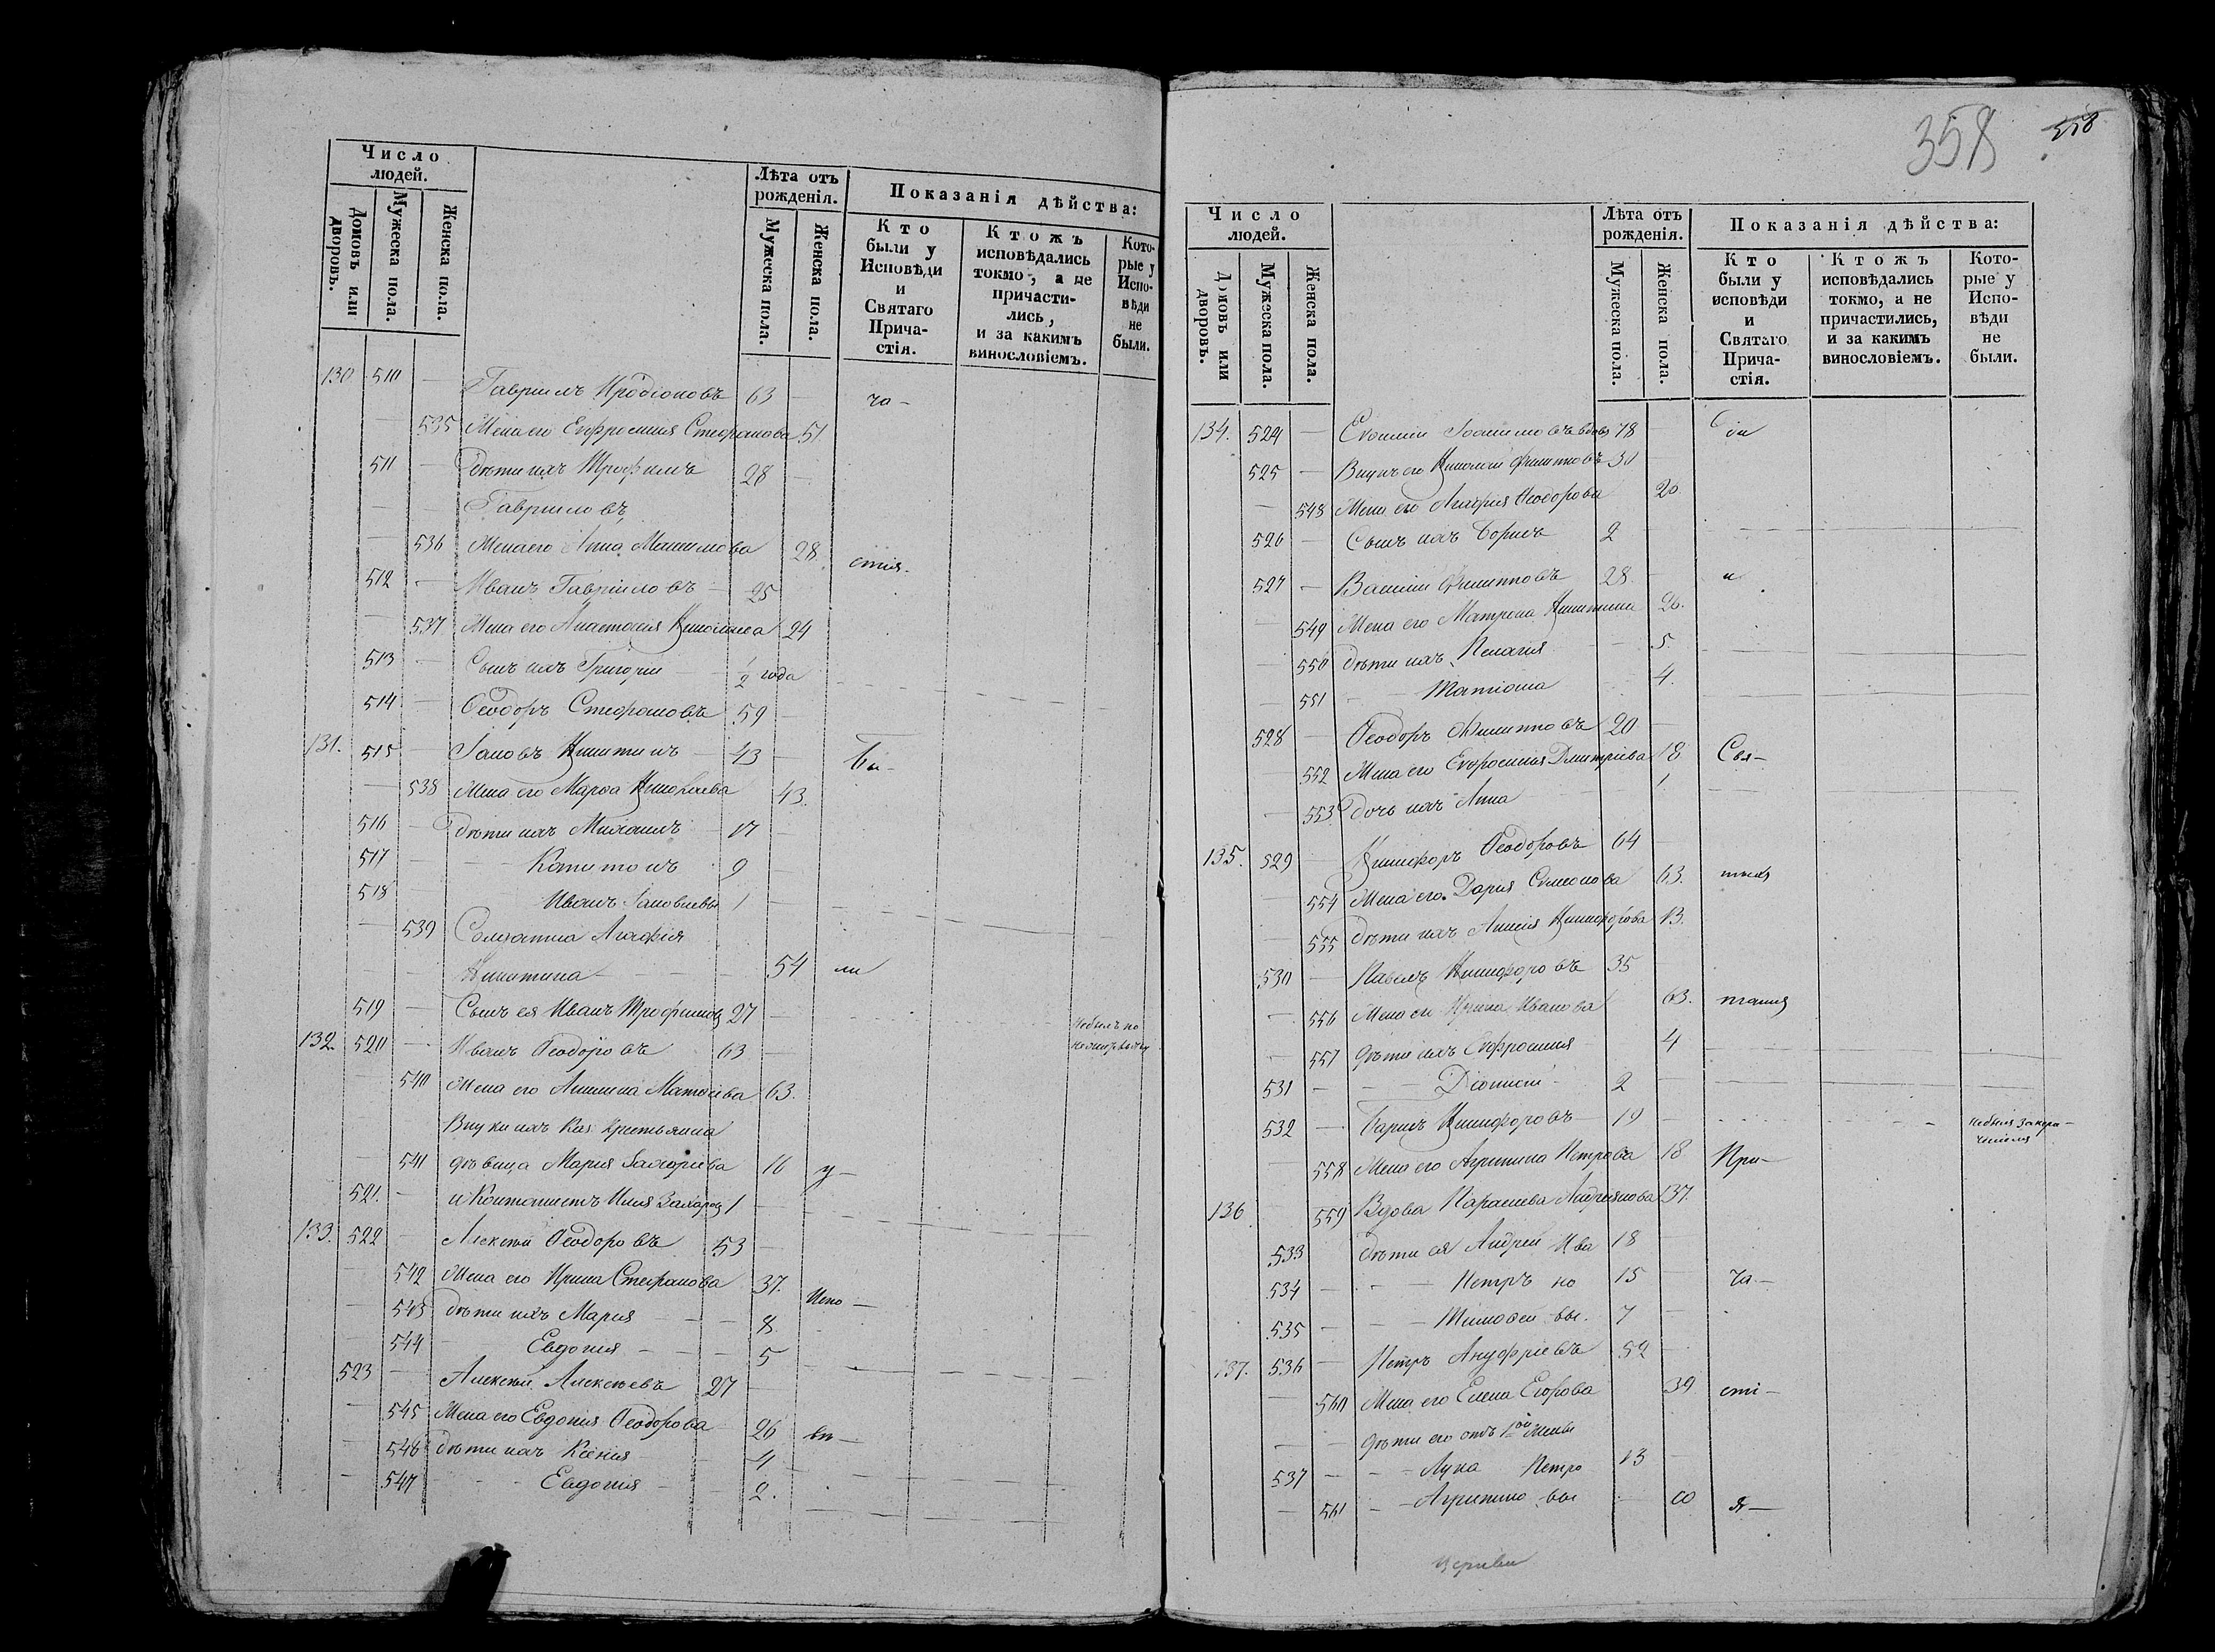 Число людей.
Домовъ или дворовъ.
Мужеска пола.
Женска пола.
Лѣта отъ рожденія.
Мужеска пола.
Женска пола.
Показанія дѣйства:
Кто были у Исповѣди и Святаго Прича-стія.
Ктожъ исповѣдались токмо, а не причасти-лись, и за какимъ винословіемъ.
Кото-рые у Испо-вѣди не были.
130 510 — Гавриилъ Иродіоновъ 63 — ча-
535 Жена его Евфросинія Стефанова 51
511 — Дѣти ихъ Трофимъ 28 —
Гавриловъ
536 Жена его Анна Максимова 28 стія.
512 — Иванъ Гавриловъ — 25
537 Жена его Анастасія Николаева 24
513 — Сынъ ихъ Григорій — 1/2 года
514 — Ѳеодоръ Стефановъ 59 —
131. 515 — Іаковъ Никитинъ — 43 — Бы-
538 Жена его Марѳа Николаева 43.
516 — Дѣти ихъ Михаилъ — 17 —
517 — Капитонъ 9 —
518 — Иванъ Іаковлевы 1 —
539 Солдатка Агафія
Никитина — 54 ли
519 — Сынъ ея Иванъ Трофимовъ 27 —
132. 520 — Иванъ Ѳеодоровъ 63 — небылъ по
540 Жена его Акилина Матѳіева 63.
Внуки ихъ Каз. крестьянина
541 дѣвица Марія Захаріева 16 у-
521. — и Кантонистъ Илія Захаровъ 1 —
133. 522 — Алексѣй Ѳеодоровъ 53 —
542 Жена его Ирина Стефанова 37. Испо-
543 Дѣти ихъ Марія — 8
544 — Евдокія — 5
523 — Алексѣй Алексѣевъ 27 —
545 Жена его Евдокія Ѳеодорова 26 вѣ-
546 Дѣти ихъ Ксенія 4
547 — Евдокія — 2.
358
558
Число людей.
Домовъ или дворовъ.
Мужеска пола.
Женска пола.
Лѣта отъ рожденія.
Мужеска пола.
Женска пола.
Показанія дѣйства:
Кто были у исповѣди и Святаго Прича-стія.
Ктожъ исповѣдались токмо, а не причастились, и за какимъ винословіемъ.
Кото-рые у Испо-вѣди не были.
134. 524 — Евѳимій Іоакимовъ вдовъ 78 ди
525 — Внукъ его Николай Филипповъ 30 —
548 Жена его Агафія Ѳеодорова 20
526 — Сынъ ихъ Борисъ 2
527 — Василій Филипповъ 28 — и
549 Жена его Матрона Никитина 26.
550 Дѣти ихъ Пелагія 5.
551 — Татіана 4.
528 — Ѳеодоръ Филипповъ 20 —
552 Жена его Евфросинія Дмитріева 18 Свя-
553 Дочь ихъ Анна 1
135. 529 Никифоръ Ѳеодоровъ 64 —
554 Жена его Дарія Симеонова 63. таго
555 Дѣти ихъ Анисія Никифорова 13.
530 — Павелъ Никифоровъ 35
556 Жена его Ирина Иванова 63.
557 Дѣти ихъ Евфросинія 4
531 — Діонисій 2
532 — Борисъ Никифоровъ 19 —
558 Жена его Агрипина Петрова 18 При-
136 559 Вдова Параскева Андріянова 37.
533 Дѣти ея Андрей Ива 18
534 — Петръ но 15 ча-
535 — Тимоѳей вы. 7
137. 536 — Петръ Ануфріевъ 52 —
560 Жена его Елена Егорова 39 сті-
Дѣти его отъ 1ой Жены
537 — Лука Петро 13
561 — Агрипина вы 10 я-
церкви